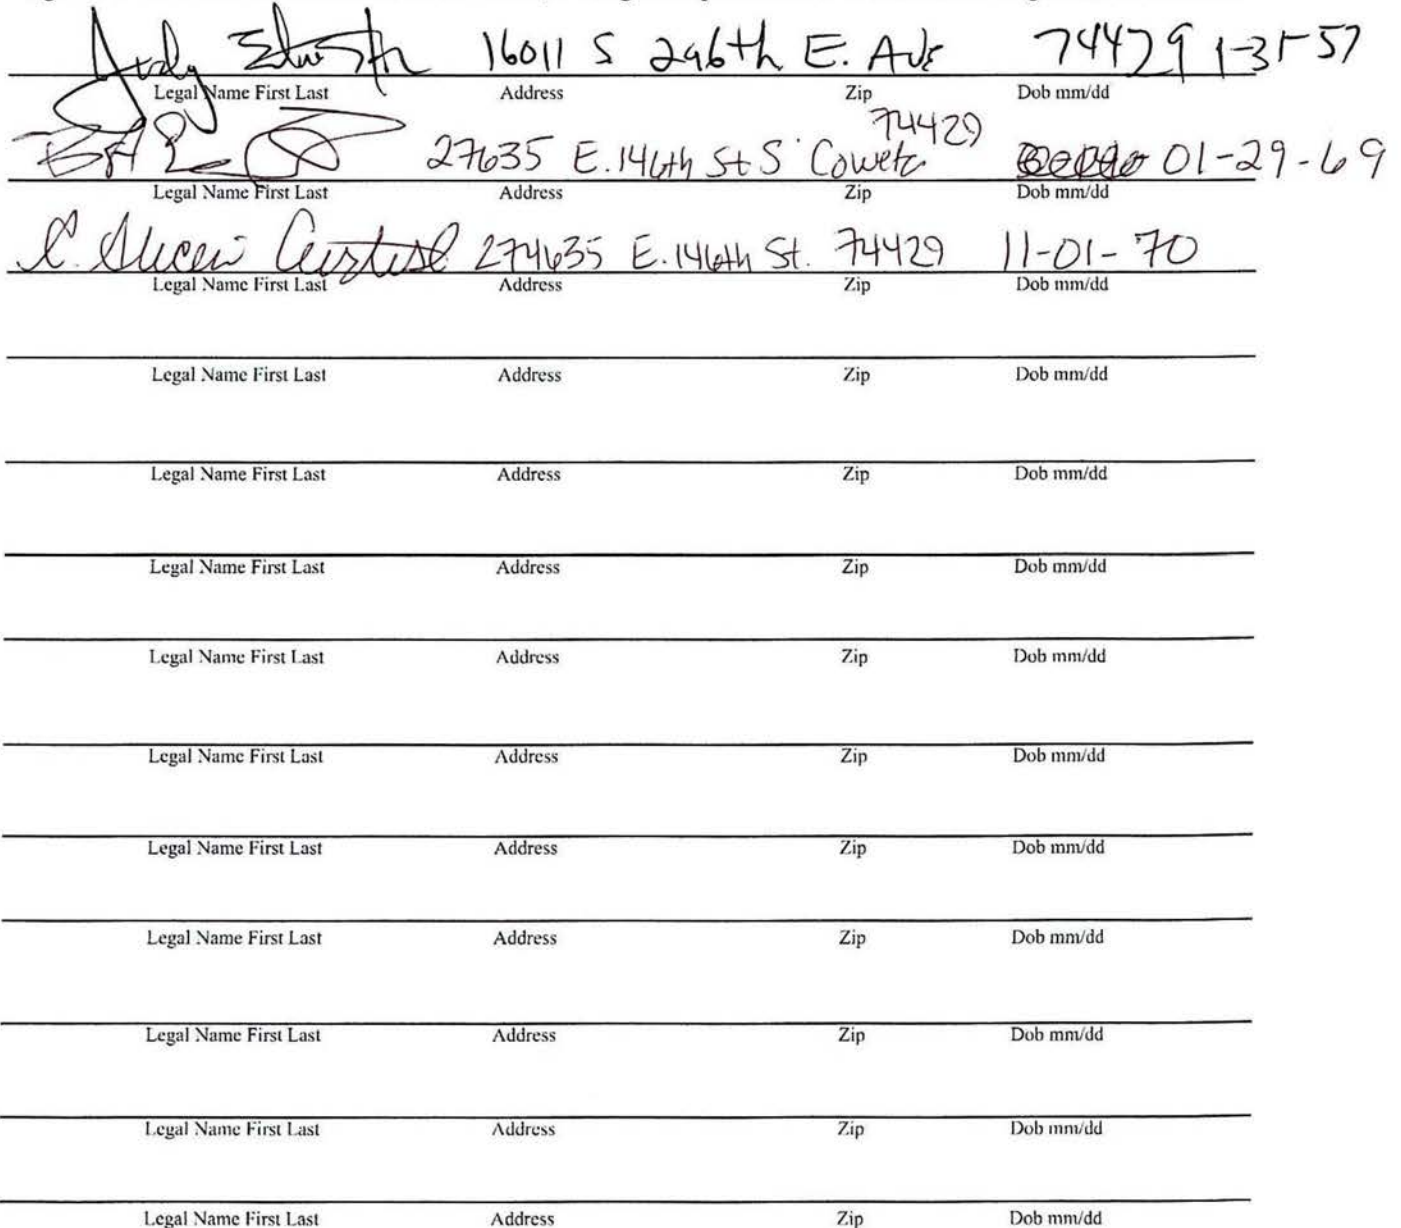 16011 S 296th E. Ave 74429 1-31-57
Legal Name First Last Address Zip Dob mm/dd
74429
27635 E. 146th St S Coweta 01-29-69
Legal Name First Last Address Zip Dob mm/dd
274635 E. 146th St. 74429 11-01-70
Legal Name First Last Address Zip Dob mm/dd
Legal Name First Last Address Zip Dob mm/dd
Legal Name First Last Address Zip Dob mm/dd
Legal Name First Last Address Zip Dob mm/dd
Legal Name First Last Address Zip Dob mm/dd
Legal Name First Last Address Zip Dob mm/dd
Legal Name First Last Address Zip Dob mm/dd
Legal Name First Last Address Zip Dob mm/dd
Legal Name First Last Address Zip Dob mm/dd
Legal Name First Last Address Zip Dob mm/dd
Legal Name First Last Address Zip Dob mm/dd